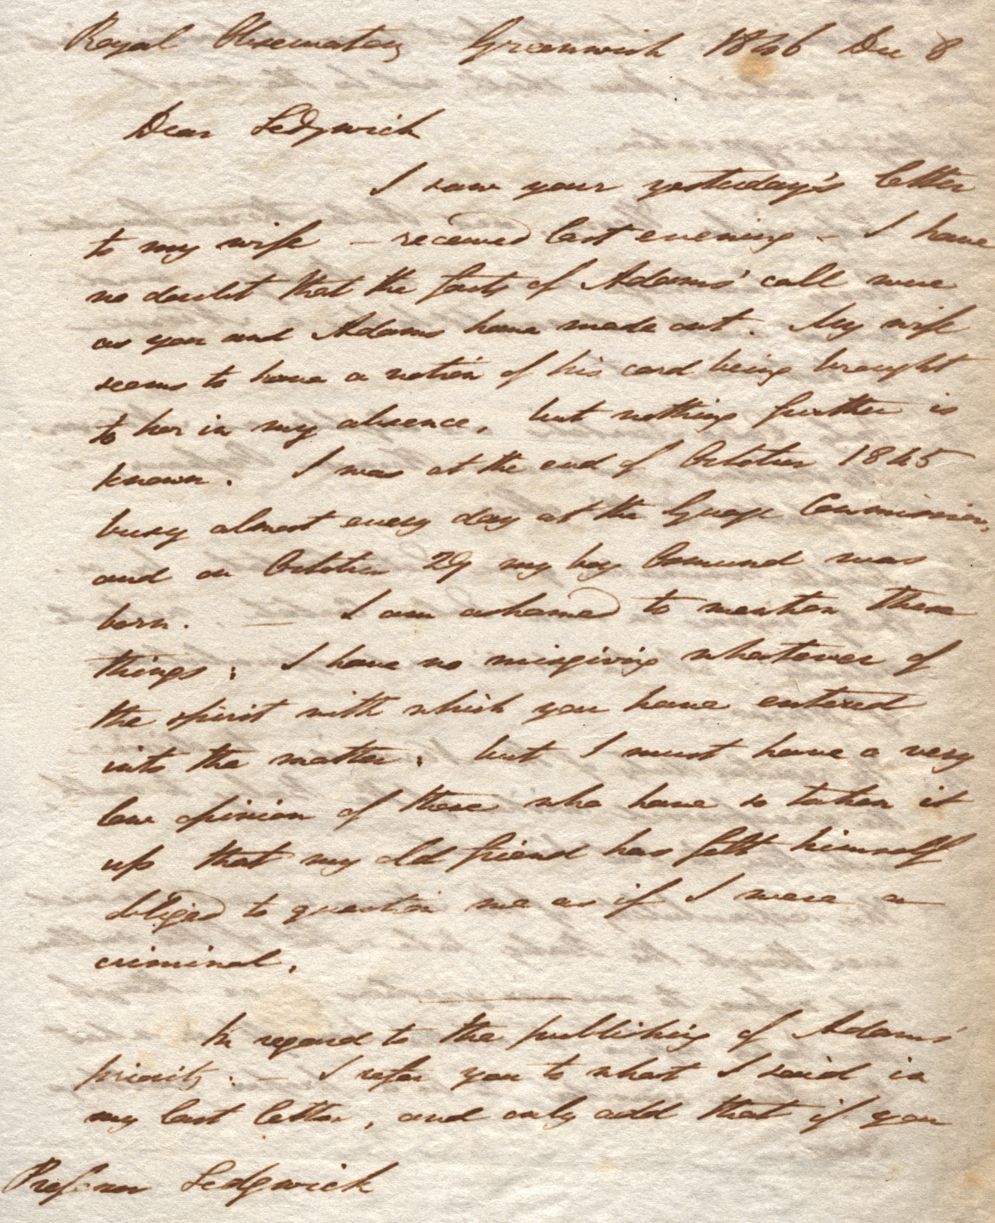 Royal Observatory Greenwich 1846 Dec 8
Dear Sedgwick
I saw your yesterday's letter
to my wife – received last evening – I have
no doubt that the facts of Adams' call were
as you and Adams have made out. My wife
seems to have a notion of his card being brought
to her in my absence, but nothing further is
known. I was at the end of October 1845
busy almost every day at the Guage Commission,
and on October 29 my boy Osmund was
born. — I am ashamed to mention these
things; I have no misgiving whatever of
the spirit with which you have entered
into the matter; but I must have a very
low opinion of those who have so taken it
up that my old friend has felt himself
obliged to question me as if I were a
criminal.
In regard to the publishing of Adams'
priority. — I refer you to what I said in
my last letter, and only add that if you
Professor Sedgwick